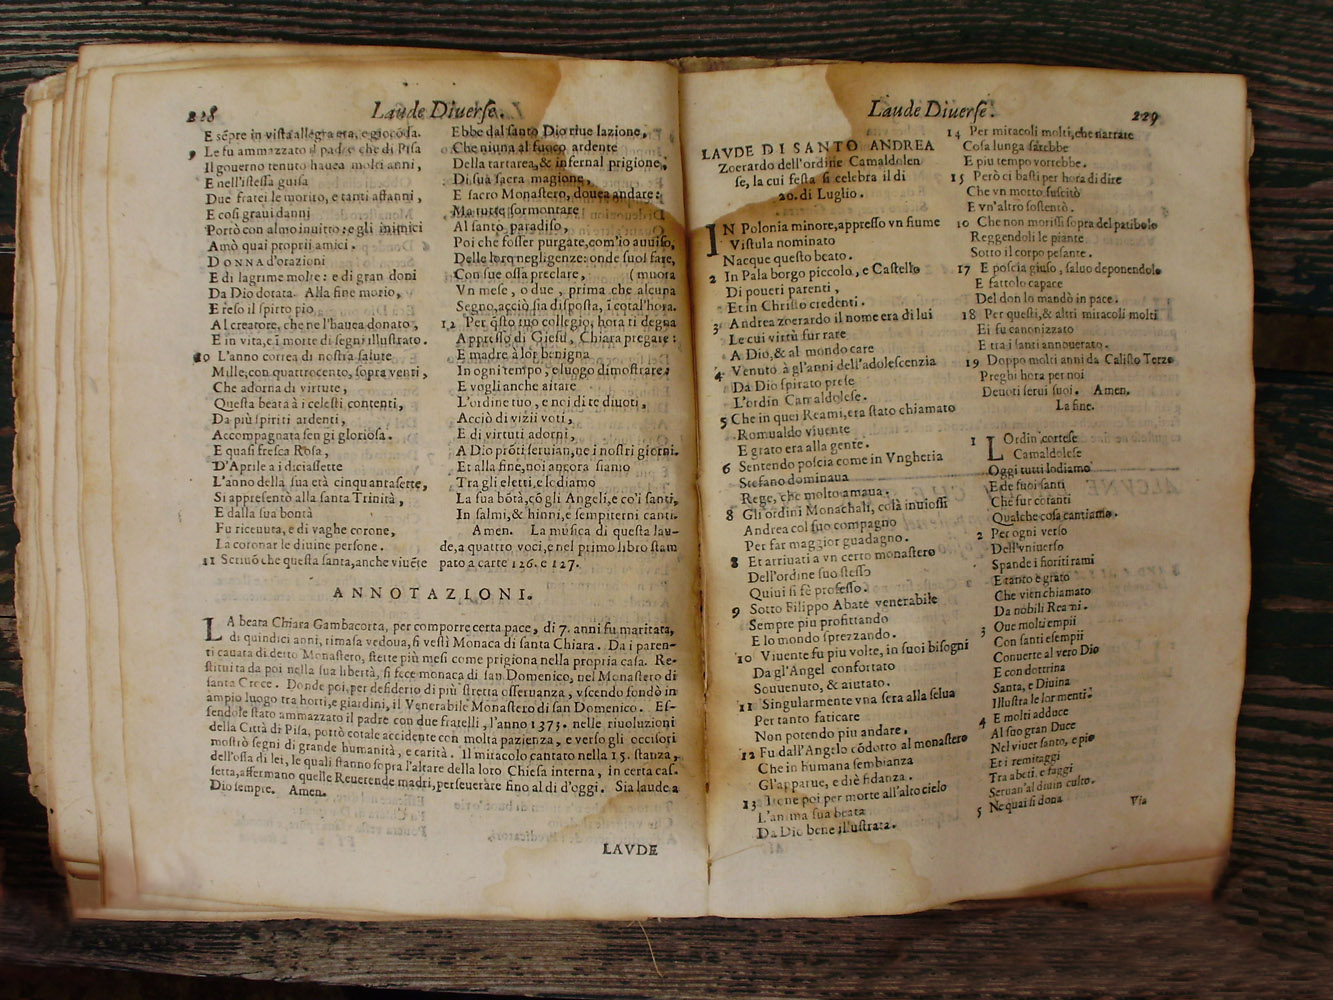 228
Laude Diuerse.
E sẽpre in vista allegra era, e giocõsa.
9 Le fu ammazzato il padre che di Pisa
Il gouerno tenuto hauea molti anni,
E nell'istessa guisa
Due fratei le morito, e tanti affanni,
E così graui danni
Portò con almo inuitto: e gli inimici
Amò quai proprii amici.
DONNA d'orazioni
E di lagrime molte: e di gran doni
Da Dio dotata. Alla fine morio,
E reso il spirto pio
Al creatore, che ne l'hauea donato,
E in vita, e ĩ morte di segni illustrato.
10 L'anno correa di nostra salute
Mille, con quattrocento, sopra venti,
Che adorna di virtute,
Questa beata à i celesti contenti,
Da più spiriti ardenti,
Accompagnata sen gi gloriosa.
E quasi fresca Rosa,
D'Aprile a i diciassette
L'anno della sua età cinquantasette,
Si appresentò alla santa Trinità,
E dalla sua bontà
Fu riceuuta, e di vaghe corone,
La coronar le diuine persone.
11 Scriuõ che questa santa, anche viuẽte
Ebbe dal santo Dio riuelazione,
Che niuna al fuoco ardente
Della tartarea, & infernal prigione,
Di sua sacra magione,
E sacro Monastero, douea andare:
Ma tutte sormontare
Al santo paradiso,
Poi che fosser purgate, com'io auuiso,
Delle lor negligenze: onde suol fare,
Con sue ossa preclare, ( muora
Vn mese, o due, prima che alcuna
Segno, acciò sia disposta, ĩ cotal'hora.
12 Per q̃sto tuo collegio, hora ti degna
Appresso di Giesu, Chiara pregare:
E madre à lor benigna
In ogni tempo, e luogo dimostrare:
E vogli anche aitare
L'ordine tuo, e noi di te diuoti,
Acciò di vizii voti,
E di virtuti adorni,
A Dio prõti seruian, ne i nostri giorni.
Et alla fine, noi ancora siamo
Tra gli eletti, e sediamo
La sua bõtà, cõ gli Angeli, e co'i santi,
In salmi, & hinni, e sempiterni canti.
Amen. La musica di questa lau-
de, a quattro voci, e nel primo libro stam
pato a carte 126. e 127.
ANNOTAZIONI.
LA beata Chiara Gambacorta, per comporre certa pace, di 7. anni fu maritata,
di quindici anni, rimasa vedoua, si vestì Monaca di santa Chiara. Da i paren-
ti cauata di detto Monastero, stette più mesi come prigiona nella propria casa. Re-
stituita da poi nella sua libertà, si fece monaca di san Domenico, nel Monastero di
santa Croce. Donde poi, per desiderio di più stretta osseruanza, vscendo fondò in
ampio luogo tra horti, e giardini, il Venerabile Monastero di san Domenico. Es-
sendole stato ammazzato il padre con due fratelli, l'anno 1375. nelle riuoluzioni
della Città di Pisa, portò cotale accidente con molta pazienza, e verso gli occisori
mostrò segni di grande humanità, e carità. Il miracolo cantato nella 15. stanza,
dell'ossa di lei, le quali stanno sopra l'altare della loro Chiesa interna, in certa cas.
setta, affermano quelle Reuerende madri, perseuerare fino al dì d'oggi. Sia laude a
Dio sempre. Amen.
LAVDE
Laude Diuerse.
229
LAVDE DI SANTO ANDREA
Zoerardo dell'ordine Camaldolen
se, la cui festa si celebra il di
20. di Luglio.
IN Polonia minore, appresso vn fiume
Vistula nominato
Nacque questo beato.
2 In Pala borgo piccolo, e Castello
Di poueri parenti,
Et in Christo credenti.
3 Andrea zoerardo il nome era di lui
Le cui virtù fur rare
A Dio, & al mondo care
4 Venuto à gl'anni dell'adolescenzia
Da Dio spirato prese
L'ordin Camaldolese.
5 Che in quei Reami, era stato chiamato
Romualdo viuente
E grato era alla gente.
6 Sentendo poscia come in Vngheria
Stefano dominaua
Rege, che molto amaua.
8 Gli ordini Monachali, colà inuiossi
Andrea col suo compagno
Per far maggior guadagno.
8 Et arriuati a vn certo monastero
Dell'ordine suo stesso
Quiui si fè professo.
9 Sotto Filippo Abate venerabile
Sempre piu profittando
E lo mondo sprezzando.
10 Viuente fu piu volte, in suoi bisogni
Da gl'Angel confortato
Souuenuto, & aiutato.
11 Singularmente vna sera alla selua
Per tanto faticare
Non potendo piu andare,
12 Fu dall'Angelo cõdotto al monastero
Che in humana sembianza
Gl'apparue, e diè fidanza.
13 Tiene poi per morte all'alto cielo
L'anima sua beata
Da Dio bene illustrata.
14 Per miracoli molti, che narrare
Cosa lunga sarebbe
E piu tempo vorrebbe.
15 Però ci basti per hora di dire
Che vn morto suscitò
E vn'altro sostentò.
10 Che non morissi sopra del patibolo
Reggendoli le piante
Sotto il corpo pesante.
17 E poscia giuso, saluo deponendolo
E fattolo capace
Del don lo mandò in pace.
18 Per questi, & altri miracoli molti
Ei fu canonizzato
E tra i santi annouerato.
19 Doppo molti anni da Calisto Terzo
Preghi hora per noi
Deuoti serui suoi. Amen.
La fine.
1 L Ordin cortese
Camaldolese
Oggi tutti lodiamo
E de suoi santi
Che fur cotanti
Qualche cosa cantiamo.
2 Per ogni verso
Dell'vniuerso
Spande i fioriti rami
E tanto è grato
Che vien chiamato
Da nobili Reami.
3 Que molti empii
Con santi esempii
Conuerte al vero Dio
E con dottrina
Santa, e Diuina
Illustra le lor menti.
4 E molti adduce
Al suo gran Duce
Nel viuer santo, e pio
Et i remitaggi
Tra abeti, e faggi
Seruan'al diuin culto.
5 Ne quai si dona
Via